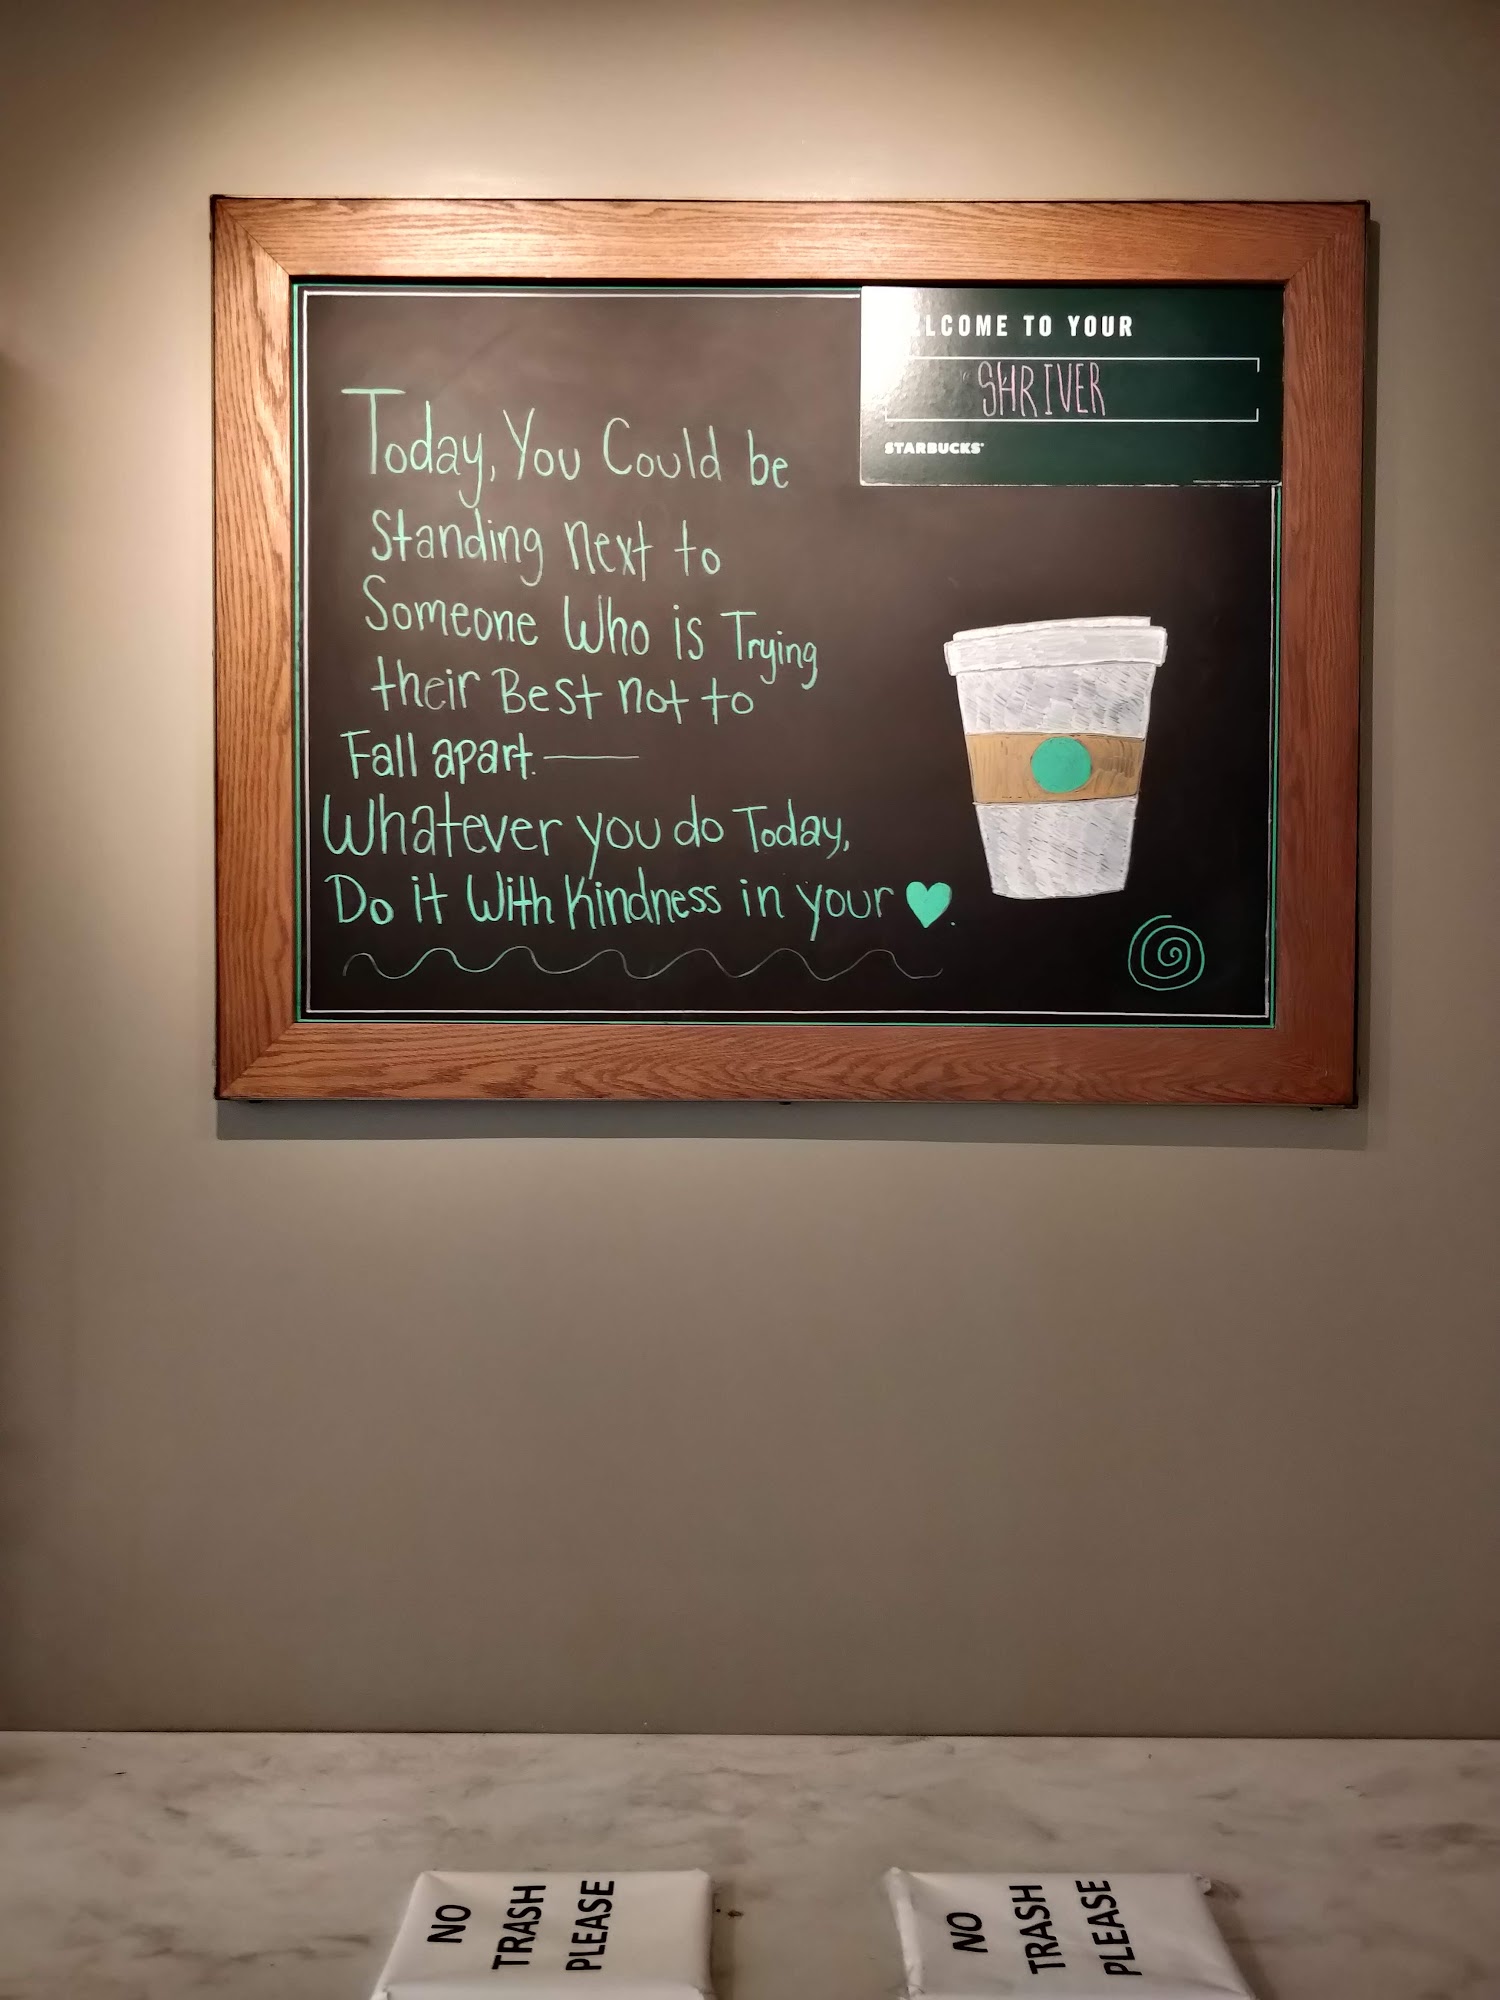 Today, You Could be
Standing next to
Someone Who is Trying
their Best not to
Fall apart.
Whatever you do Today,
Do it With Kindness in your ♥.
LCOME TO YOUR
SHRIVER
STARBUCKS
NO
TRASH
PLEASE
NO
TRASH
PLEASE